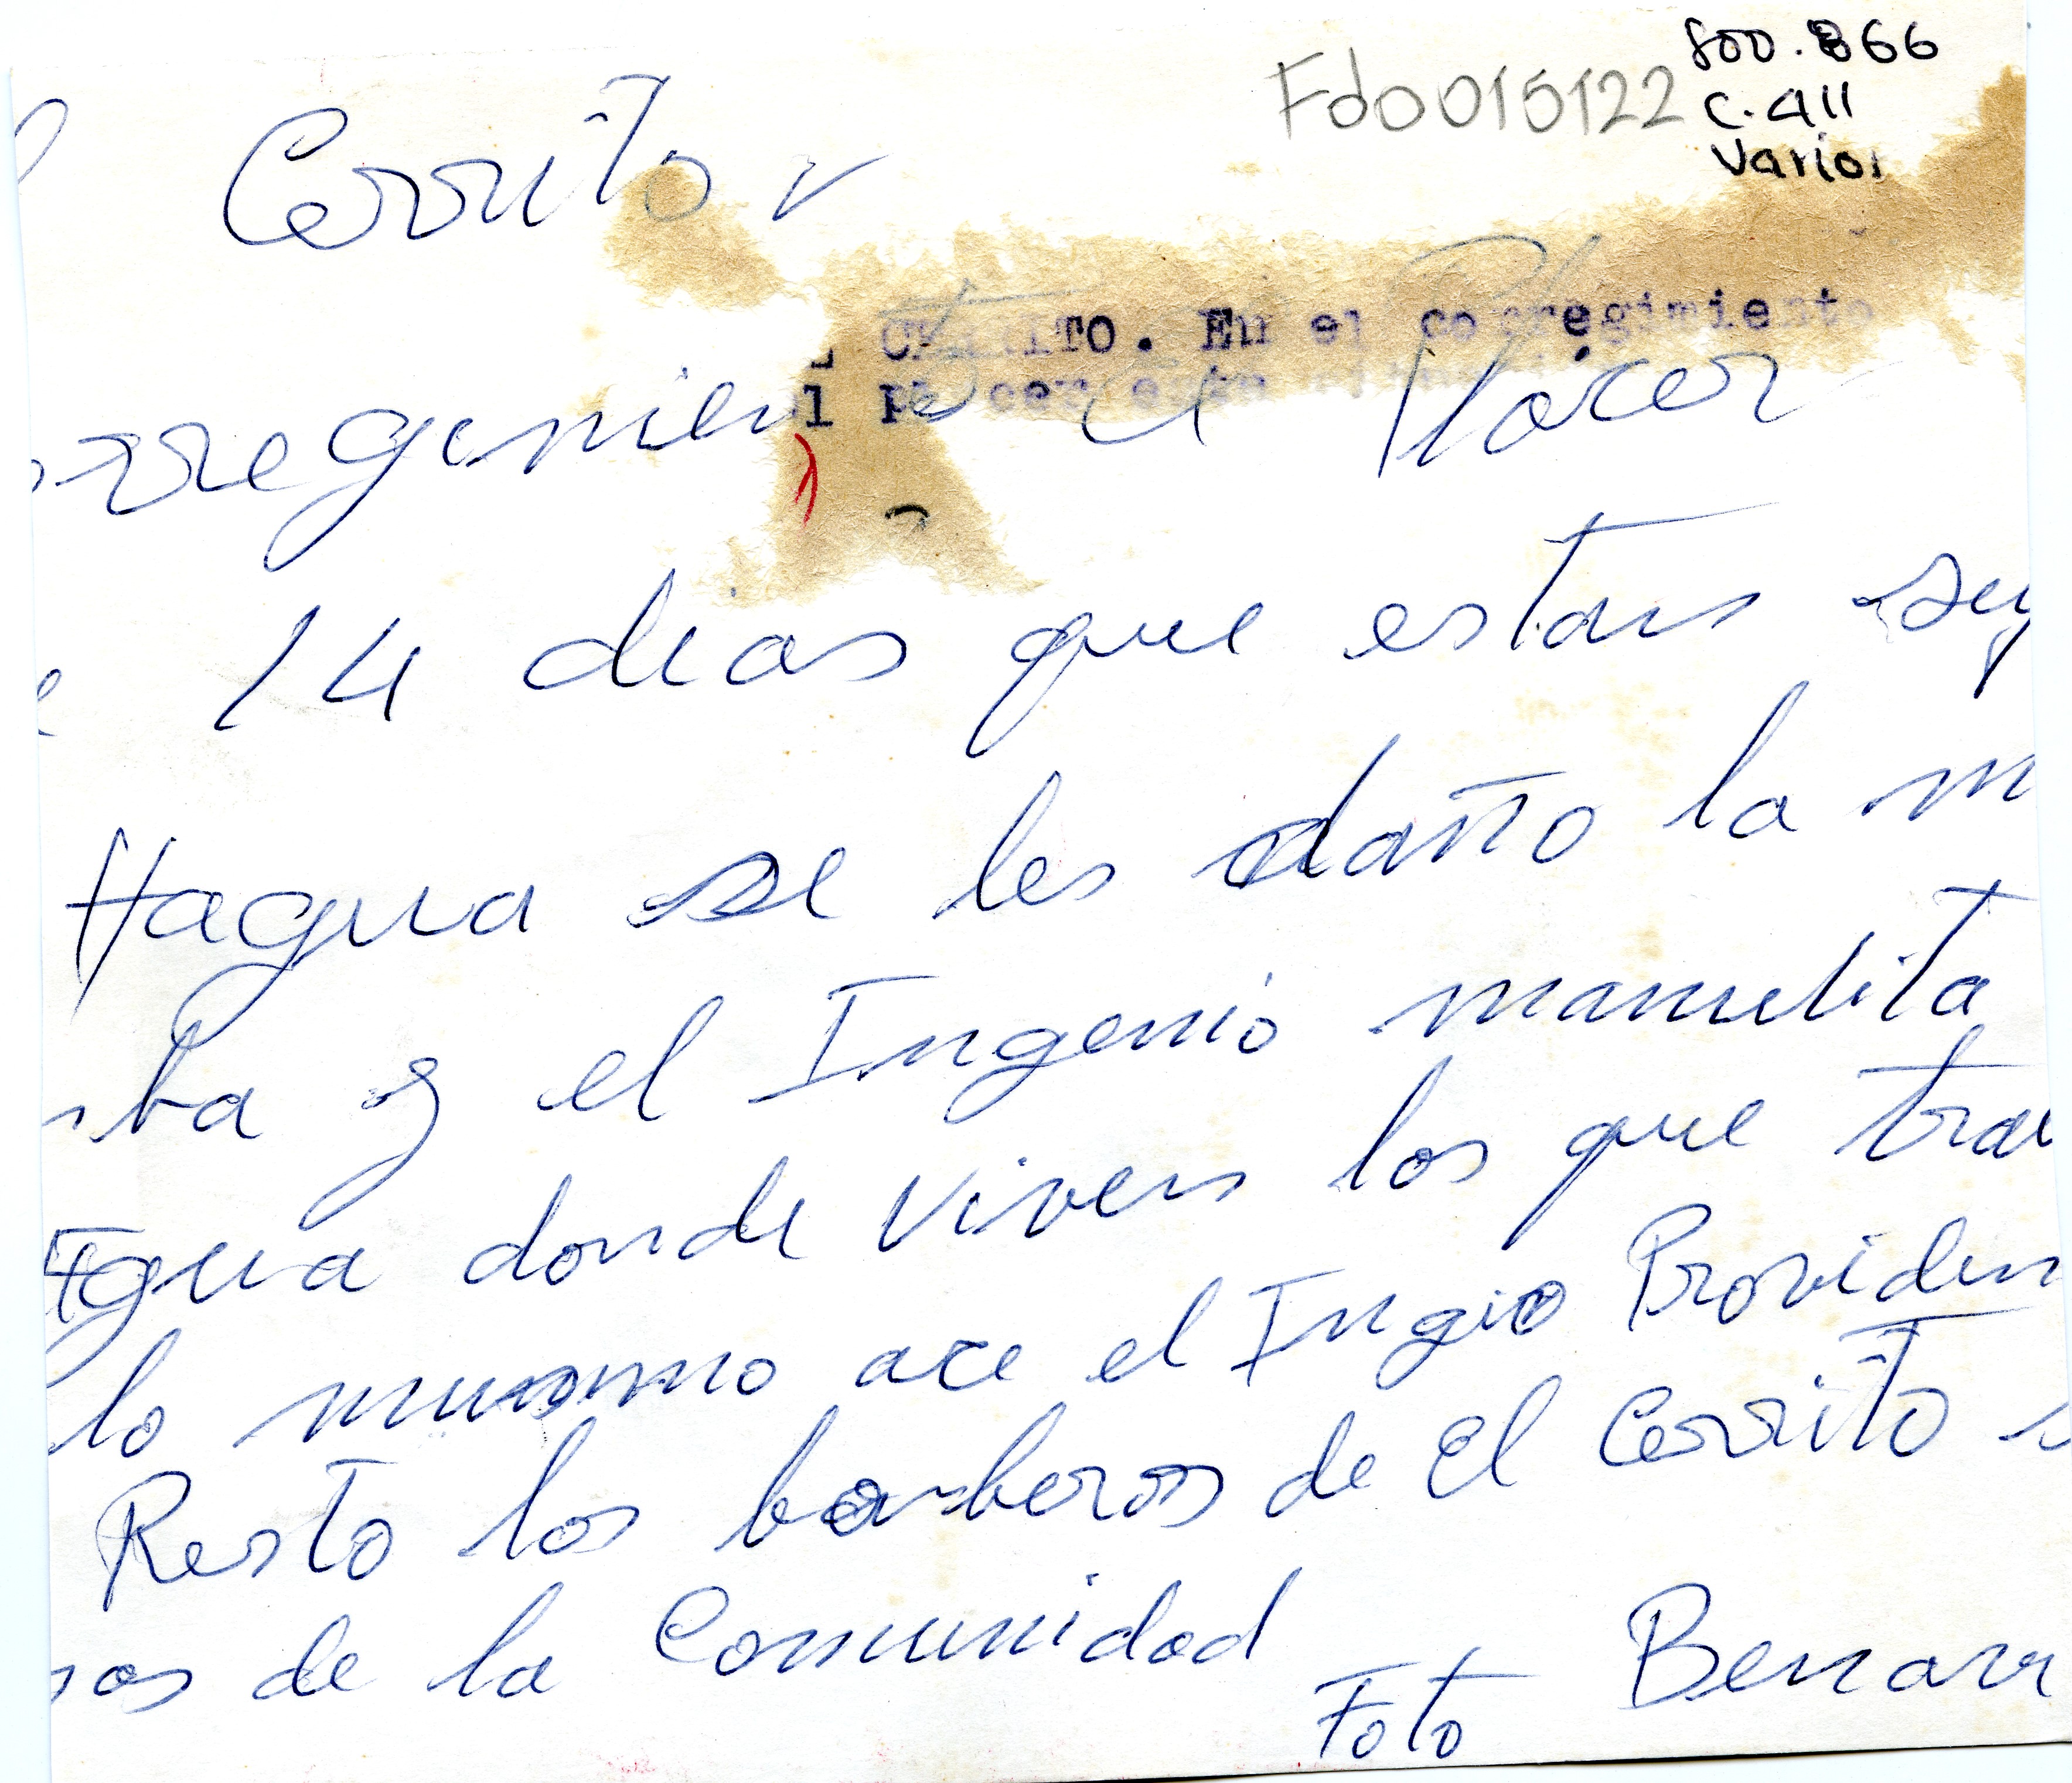 Fdo015122
800.B66
C.411
Varios
l Cerrito v
CERRITO. En el corregimiento
l placer
orregimien el Placer
e 14 dias que estan su
Hagua se les daño la m
ba y el Ingenio manuelita
gua donde viven los que tra
lo mismo ace el Ingio Providen
Resto los bomberos de El Cerrito
sos de la Comunidad
Foto Benav